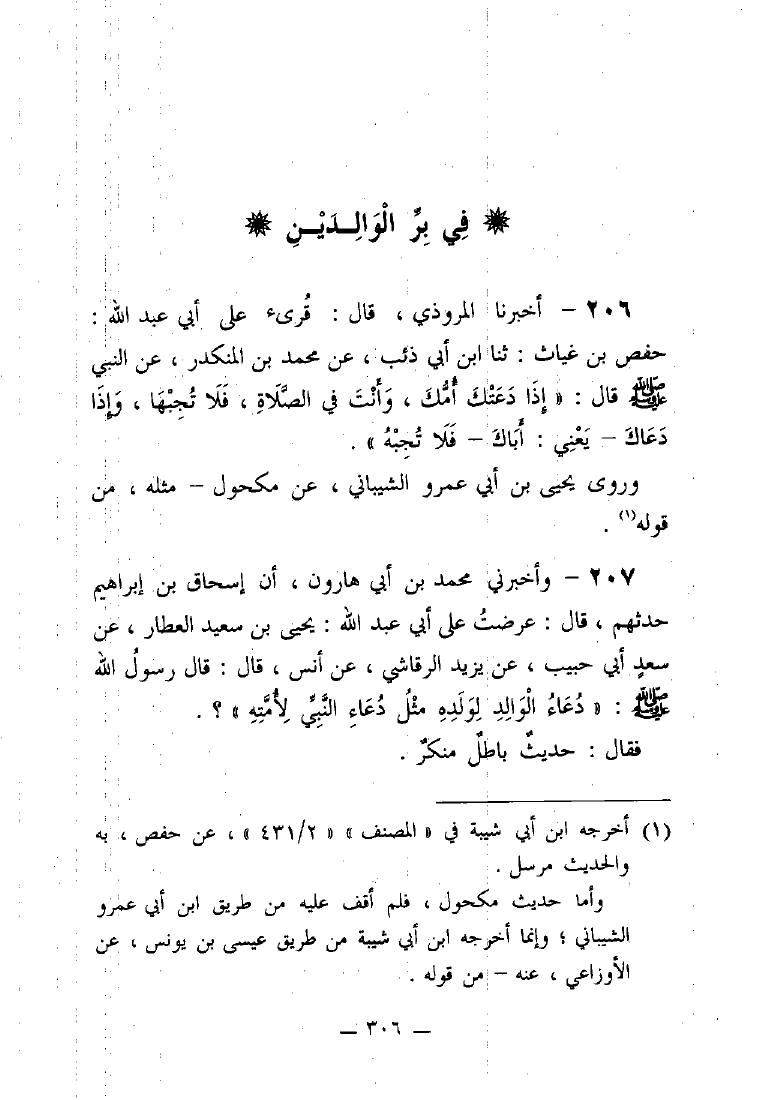 ❋ فِي بِرِّ الْوَالِـدَيْـنِ ❋
٢٠٦ – أخبرنا المروذي ، قال : قُرىء على أبي عبد الله :
حفص بن غياث : ثنا ابن أبي ذئب ، عن محمد بن المنكدر ، عن النبي
ﷺ قال : « إِذَا دَعَتْكَ أُمُّكَ ، وَأَنْتَ في الصَّلَاةِ ، فَلَا تُجِبْهَا ، وَإِذَا
دَعَاكَ – يَعْنِي : أَبَاكَ – فَلَا تُجِبْهُ » .
وروى يحيى بن أبي عمرو الشيباني ، عن مكحول – مثله ، من
قوله(١) .
٢٠٧ – وأخبرني محمد بن أبي هارون ، أن إسحاق بن إبراهيم
حدثهم ، قال : عرضتُ على أبي عبد الله : يحيى بن سعيد العطار ، عن
سعدٍ أبي حبيب ، عن يزيد الرقاشي ، عن أنس ، قال : قال رسولُ الله
ﷺ : « دُعَاءُ الْوَالِدِ لِوَلَدِهِ مثْلُ دُعَاءِ النَّبِيِّ لِأُمَّتِهِ » ؟ .
فقال : حديثٌ باطلٌ منكرٌ .
(١) أخرجه ابن أبي شيبة في « المصنف » « ٤٣١/٢ » ، عن حفص ، به
والحديث مرسل .
وأما حديث مكحول ، فلم أقف عليه من طريق ابن أبي عمرو
الشيباني ؛ وإنما أخرجه ابن أبي شيبة من طريق عيسى بن يونس ، عن
الأوزاعي ، عنه – من قوله .
— ٣٠٦ —